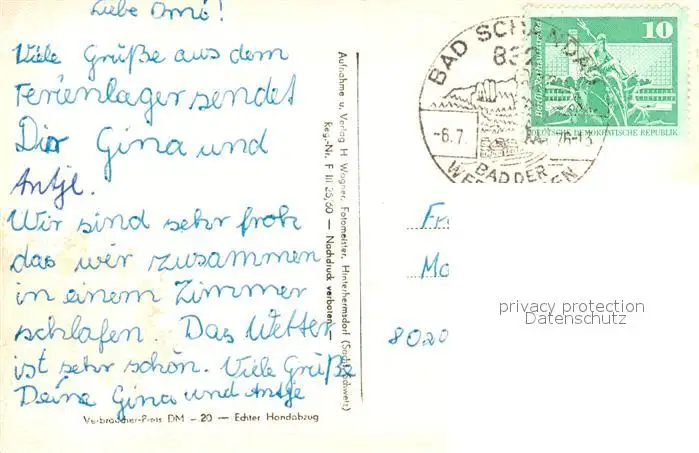 Liebe Omi!
Viele Grüße aus dem
Ferienlager sendet
Dir Gina und
Antje.
Wir sind sehr froh
das wir zusammen
in einem Zimmer
schlafen. Das Wetter
ist sehr schön. Viele Grüße
Deine Gina und Antje
Verbraucher-Preis DM -20 — Echter Handabzug
Aufnahme u. Verlag H. Wagner, Fotomeister, Hinterhermsdorf (Sächs. Schweiz)
Reg.-Nr. F III 25/60 — Nachdruck verboten
BAD SCHANDAU
832
-6.7. 76-15
BAD DER
10
DEUTSCHE DEMOKRATISCHE REPUBLIK
Fr
Mo
8020
privacy protection
Datenschutz